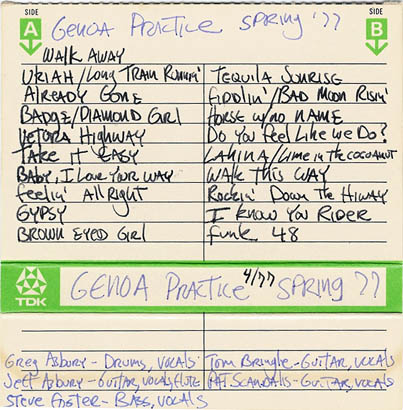 SIDE
A
GENOA PRACTICE SPRING '77
SIDE
B
WALK AWAY
URIAH/Long Train Runnin'
ALREADY GONE
BADGE/DIAMOND GIRL
VETURA HIGHWAY
TAKE IT EASY
BABY, I LOVE YOUR WAY
feelin' All Right
GYPSY
BROWN EYED GIRL
TEQUILA SUNRISE
FIDDLIN'/BAD MOON RISIN'
HORSE w/NO NAME
Do You FEEL LIKE WE Do?
LAHINA/LIME IN THE COCOANUT
WALK THIS WAY
ROCKIN' DOWN THE HIWAY
I KNOW YOU RIDER
funk 48
TDK
GENOA PRACTICE 4/77 SPRING 77
Greg Asbury - DRUMS, VOCALS
Jeff Asbury - GUITAR, VOCALS, FLUTE
Steve Foster - BASS, VOCALS
Tom Bringle - GUITAR, VOCALS
PAT SCANDALIS - GUITAR, VOCALS